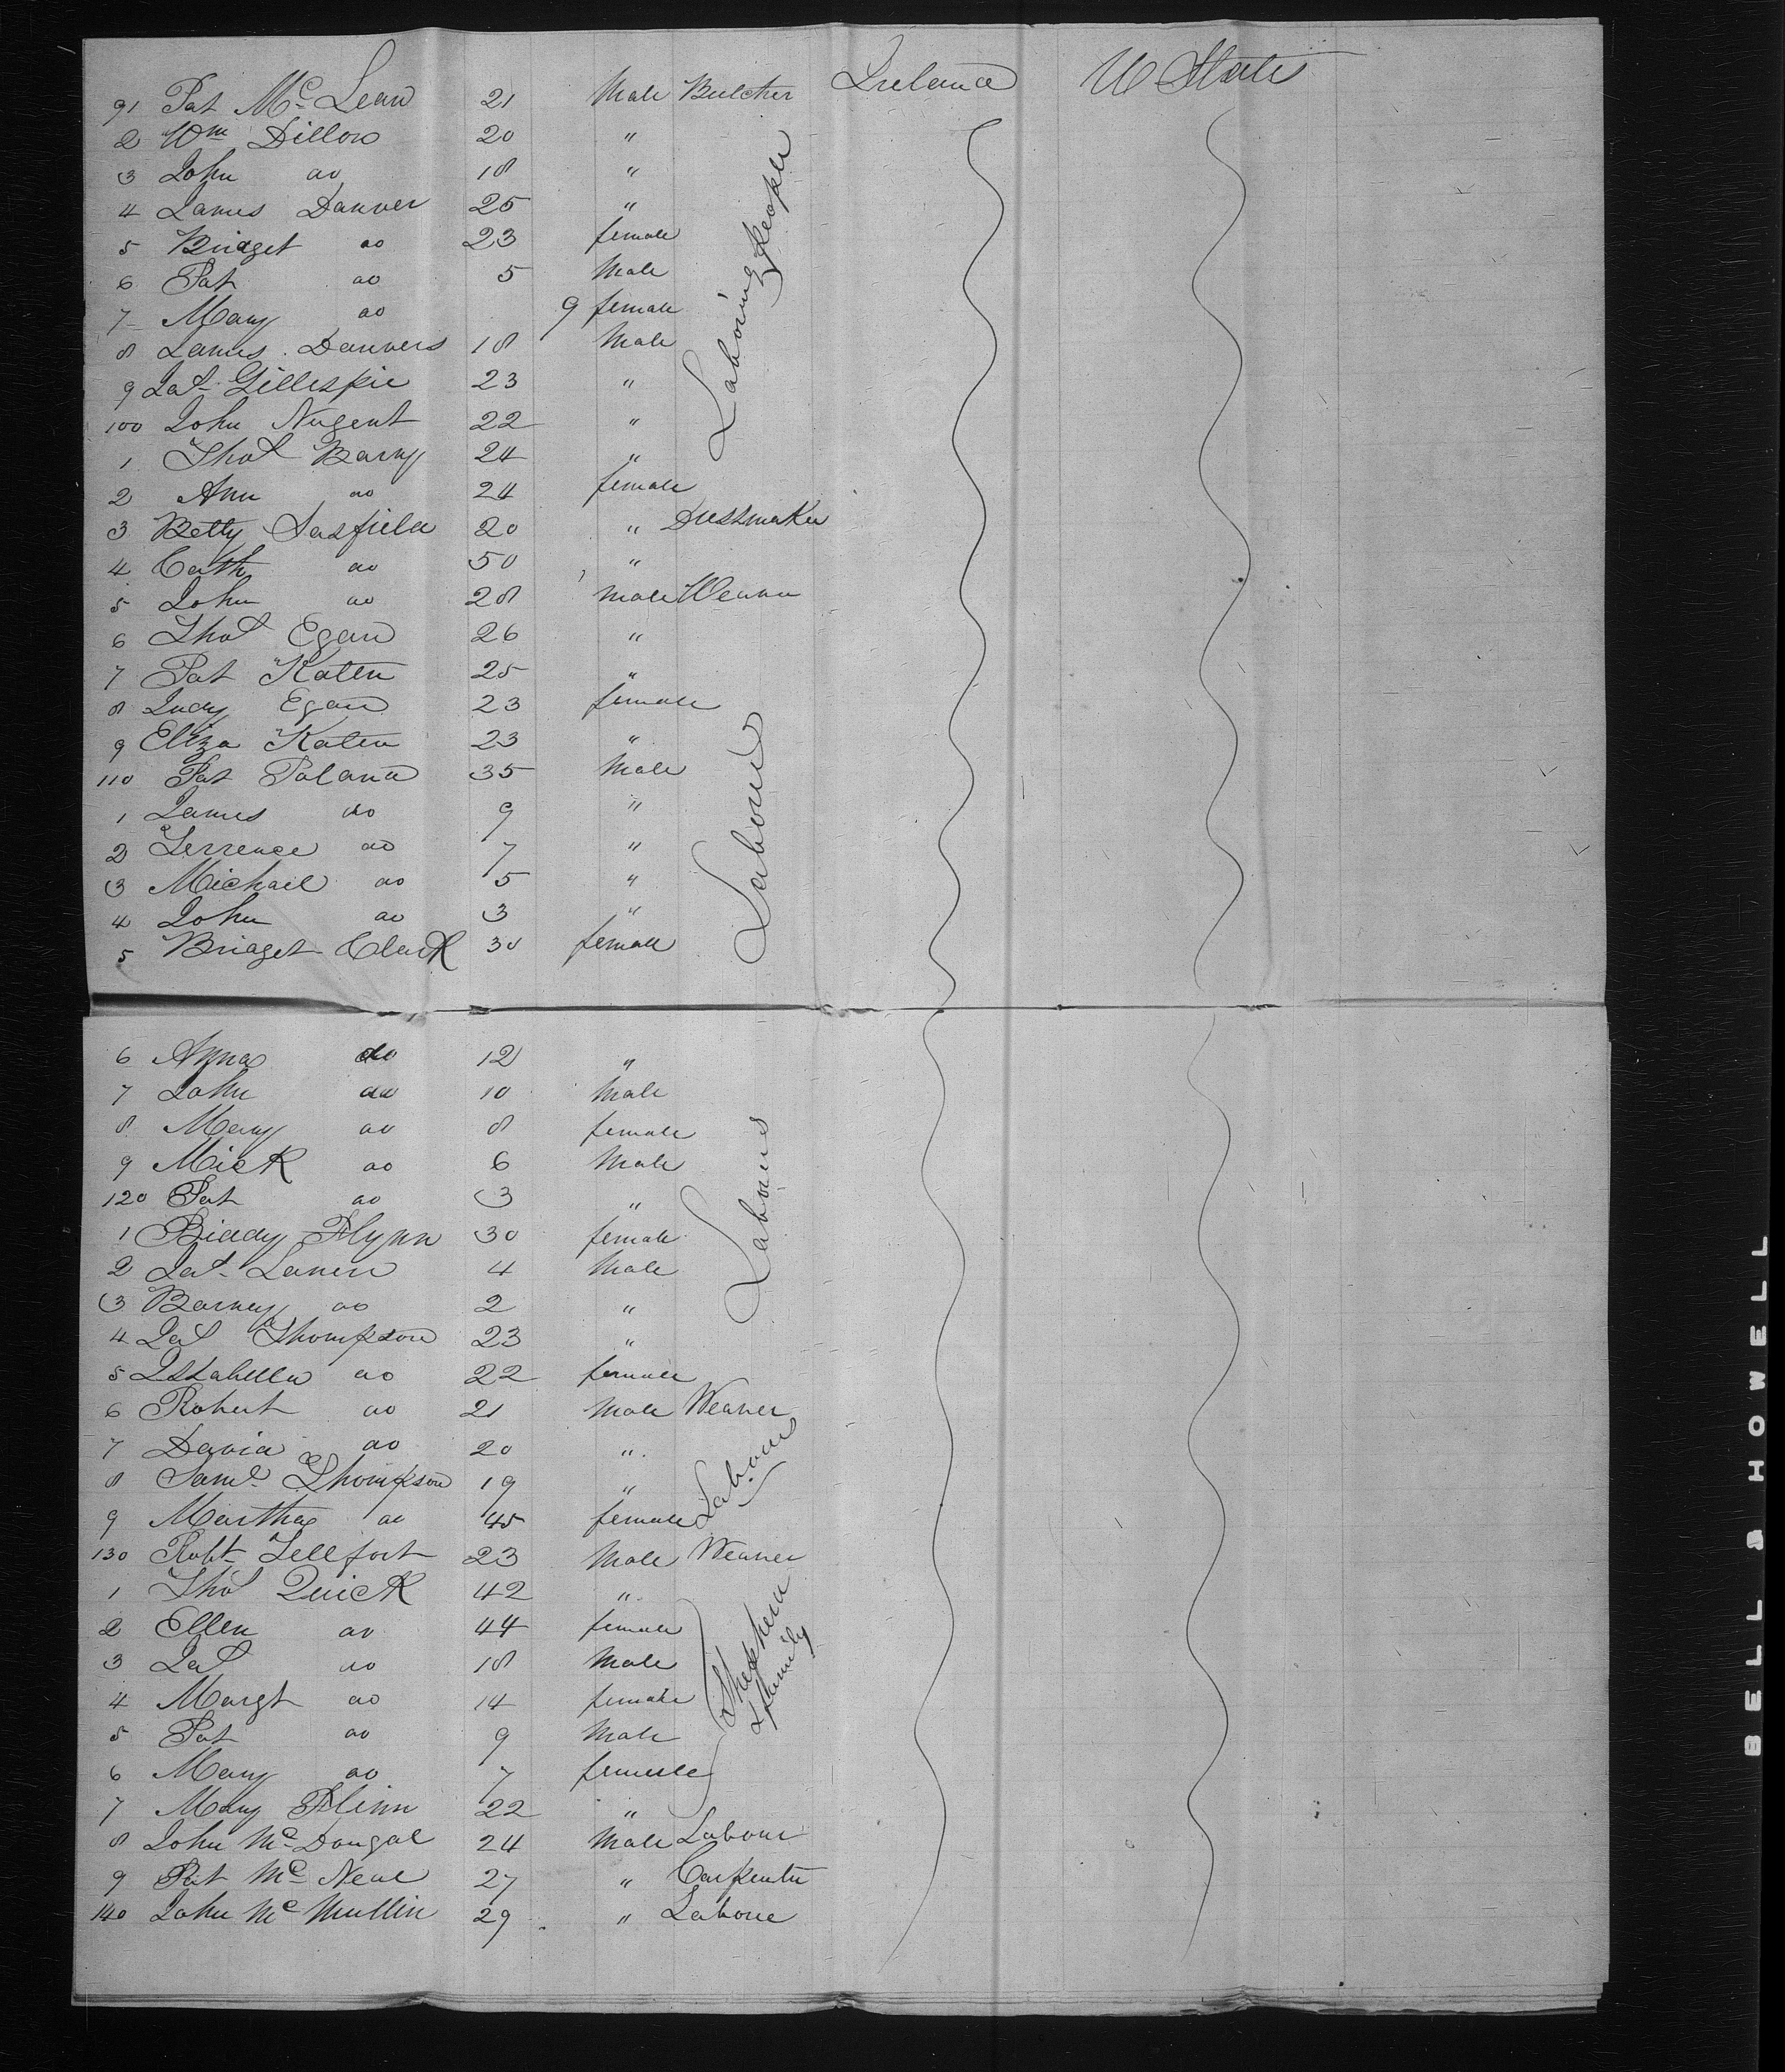 91 Pat Mc Lean 21 Male Butcher Ireland U States
2 Wm Dillon 20 "
3 John do 18 "
4 James Danver 25 "
5 Bridget do 23 female
6 Pat do 5 Male
7 Mary do 9 female
8 James Danvers 18 Male
Laboring people
9 Jas Gillespie 23 "
100 John Nugent 22 "
1 Thos Barry 24 "
2 Ann do 24 female
3 Betty Sasfield 20 " Dressmaker
4 Cath do 50 "
5 John do 28 male Weaver
6 Thos Egan 26 "
7 Pat Katen 25 "
8 Judy Egan 23 female
9 Eliza Katen 23 "
110 Pat Poland 35 Male
1 James do 9 "
2 Terrence do 7 "
3 Michael do 5 "
4 John do 3 "
5 Bridget Clark 30 female
6 Anna do 12 "
7 John do 10 Male
8 Mary do 8 female
9 Mick do 6 Male
120 Pat do 3 "
1 Biddy Flynn 30 female
2 Jas 4 Male
3 Barney do 2 "
4 Jas Thompson 23 "
5 Issabella do 22 female
6 Robert do 21 Male Weaver
7 David do 20 "
8 Saml Thompson 19 "
9 Martha do 45 female
130 Robt Tellfort 23 Male Weaver
1 Thos Quick 42 "
2 Ellen do 44 female
3 Jas do 18 Male
4 Margt do 14 female
Shepherd & family
5 Pat do 9 Male
6 Mary do 7 female
7 Mary Flinn 22 "
8 John Mc Dougal 24 Male Labour
9 Pat Mc Neal 27 " Carpenter
140 John Mc Mullin 29 " Laboue
BELL & HOWELL